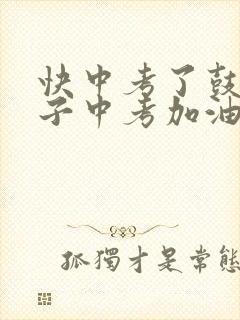 快中考了鼓
子中考加油
孤獨才是常態